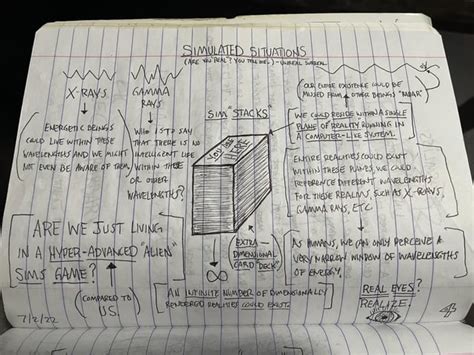 SIMULATED SITUATIONS
(ARE YOU REAL? YOU TELL ME.) - UNREAL SURREAL
X-RAYS
ENERGETIC BEINGS
COULD LIVE WITHIN THESE
WAVELENGTHS AND WE MIGHT
NOT EVEN BE AWARE OF THEM.
GAMMA
RAYS
WHO IS TO SAY
THAT THERE IS NO
INTELLIGENT LIFE
WITHIN THESE
OR OTHER
WAVELENGTHS?
SIM "STACKS"
EXTRA-
DIMENSIONAL
CARD "DECK"
∞
OUR ENTIRE EXISTENCE COULD BE
MISSED FROM OTHER BEINGS' "RADAR"
WE COULD RESIDE WITHIN A SINGLE
PLANE OF REALITY RUNNING IN
A COMPUTER-LIKE SYSTEM.
ENTIRE REALITIES COULD EXIST
WITHIN THESE PLANES. WE COULD
REFERENCE DIFFERENT WAVELENGTHS
FOR THESE REALMS, SUCH AS X-RAYS,
GAMMA RAYS, ETC
AS HUMANS, WE CAN ONLY PERCEIVE A
VERY NARROW WINDOW OF WAVELENGTHS
OF ENERGY.
ARE WE JUST LIVING
IN A HYPER-ADVANCED "ALIEN"
SIMS GAME?
(COMPARED TO
US)
AN INFINITE NUMBER OF DIMENSIONALLY
RENDERED REALITIES COULD EXIST.
REAL EYES?
REALIZE.
7/2/22